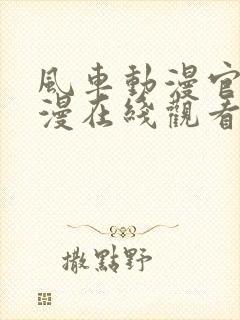 風車動漫官
漫在綫觀看
撒點野